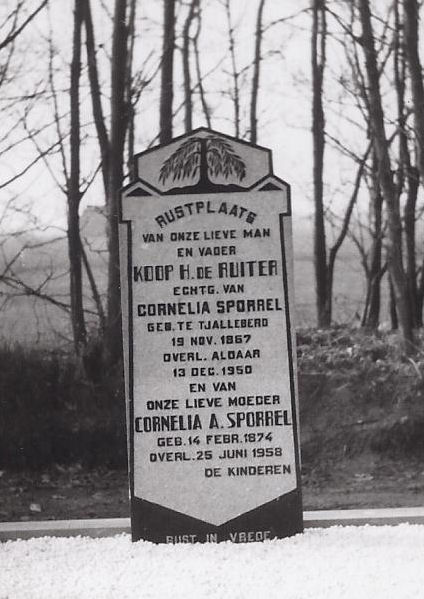 RUSTPLAATS
VAN ONZE LIEVE MAN
EN VADER
KOOP H. DE RUITER
ECHTG. VAN
CORNELIA SPORREL
GEB. TE TJALLEBERD
19 NOV. 1867
OVERL. ALDAAR
13 DEC. 1950
EN VAN
ONZE LIEVE MOEDER
CORNELIA A. SPORREL
GEB. 14 FEBR. 1874
OVERL. 25 JUNI 1958
DE KINDEREN
RUST IN VREDE